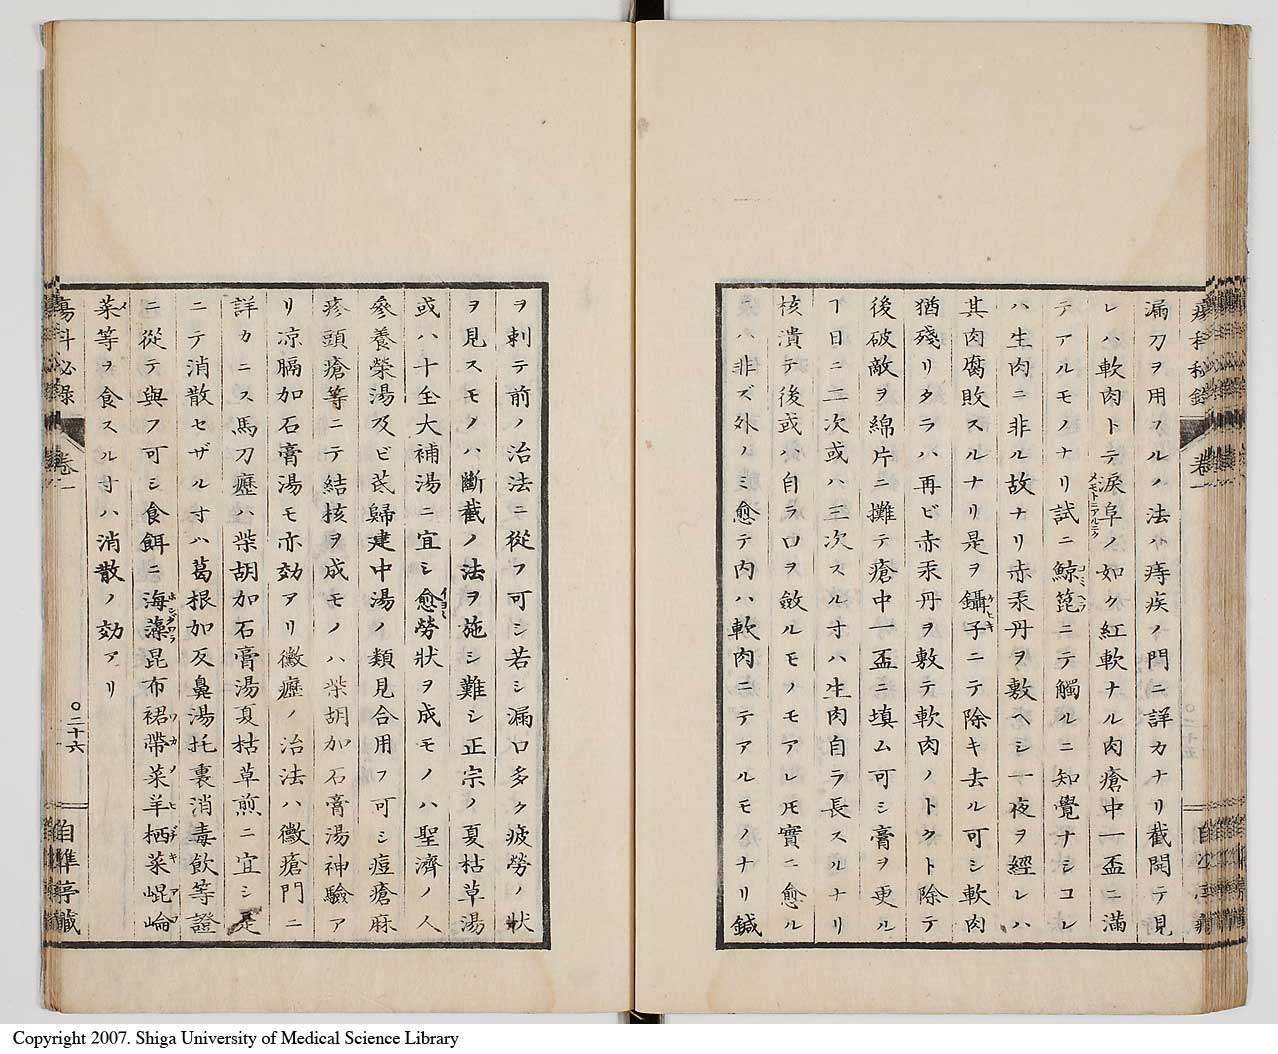 漏刀ヲ用フルノ法ハ痔疾ノ門ニ詳カナリ截開テ見
レハ軟肉トテ淚阜ノ如ク紅軟ナル肉瘡中一盃ニ滿
メモトニアルニク
テアルモノナリ試ニ鯨箆ニテ觸ルニ知覺ナシコレ
ハ生肉ニ非ル故ナリ赤汞丹ヲ敷ヘシ一夜ヲ經レハ
其肉腐敗スルナリ是ヲ鑷子ニテ除キ去ル可シ軟肉
ケヒキ
猶殘リタラハ再ビ赤汞丹ヲ敷テ軟肉ノトクト除テ
後破敵ヲ綿片ニ攤テ瘡中一盃ニ填ム可シ膏ヲ更ル
ヿ日ニ二次或ハ三次スルヰハ生肉自ラ長スルナリ
核潰テ後或ハ自ラ口ヲ斂ルモノモアレ𪜈實ニ愈ル
ハ非ズ外ノミ愈テ内ハ軟肉ニテアルモノナリ鍼
ヲ刺テ前ノ治法ニ從フ可シ若シ漏口多ク疲勞ノ狀
ヲ見スモノハ斷截ノ法ヲ施シ難シ正宗ノ夏枯草湯
或ハ十全大補湯ニ宜シ愈勞狀ヲ成モノハ聖濟ノ人
イヨ〱
參養榮湯及ビ芪歸建中湯ノ類見合用フ可シ痘瘡麻
疹頭瘡等ニテ結核ヲ成モノハ柴胡加石膏湯神驗ア
リ涼膈加石膏湯モ亦効アリ黴癧ノ治法ハ黴瘡門ニ
詳カニス馬刀癧ハ柴胡加石膏湯夏枯草煎ニ宜シ是
ニテ消散セザルヰハ葛根加反鼻湯托裏消毒飲等證
ニ從テ與フ可シ食餌ニ海藻昆布裙帶菜羊栖菜崐崘
ホンダワラ ワカメ ヒジキ アラ
菜等ヲ食スルヰハ消散ノ効アリ
メ
瘍科秘録 卷一 〇二十六 自準亭藏
Copyright 2007. Shiga University of Medical Science Library